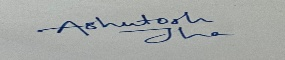 Ashutosh
Jha